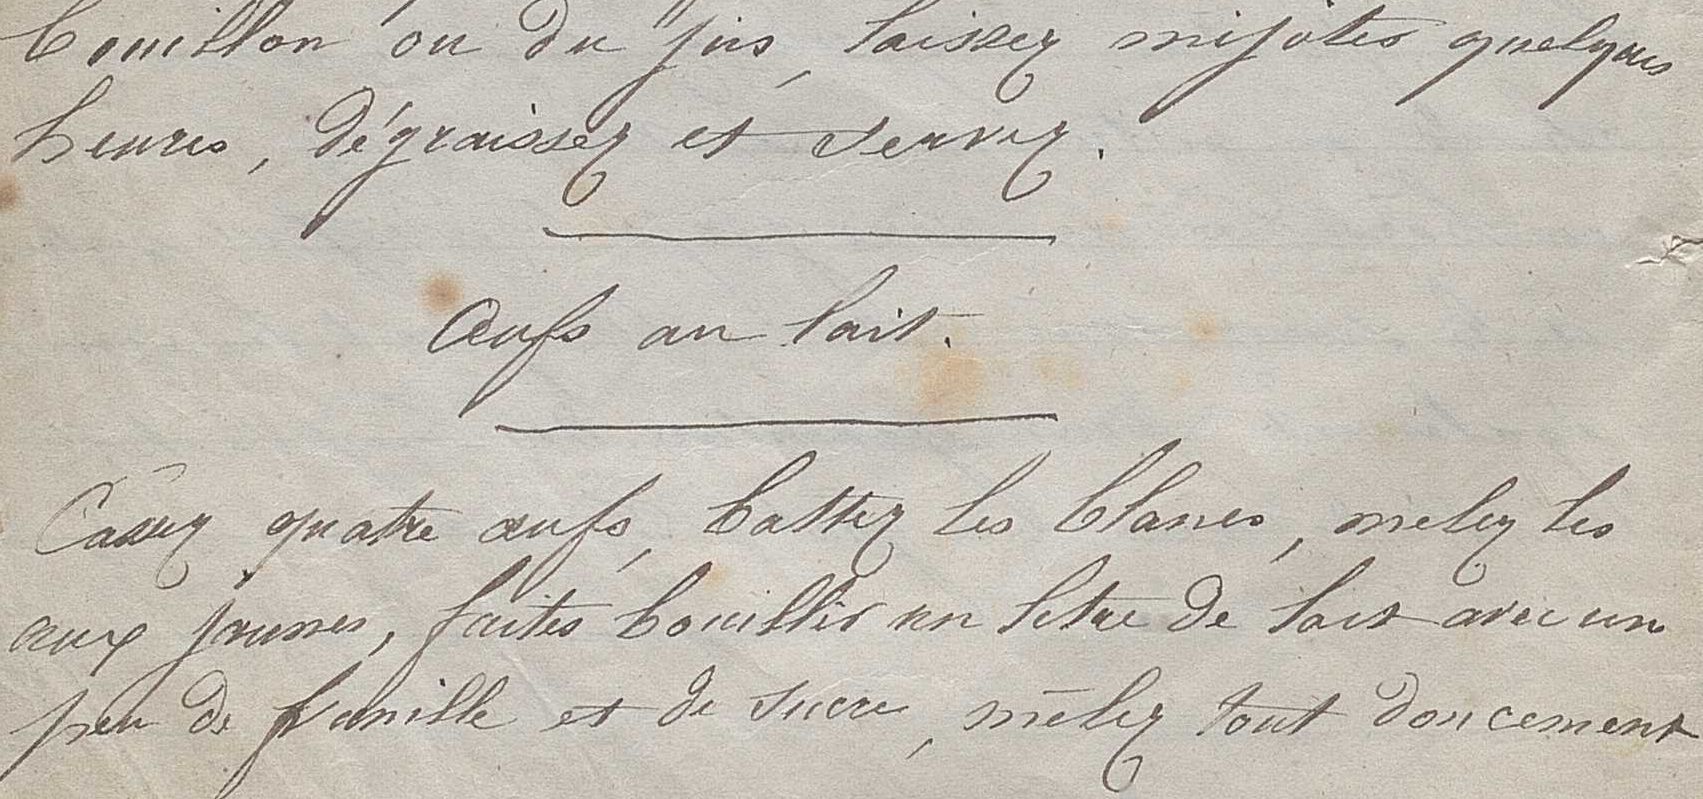 bouillon ou du jus, laissez mijoter quelques
heures, dégraissez et servez.
Œufs au lait.
Cassez quatre œufs, battez les blancs, melez les
aux jaunes, faites bouillir un litre de lait avec un
peu de vanille et de sucre, mêlez tout doucement